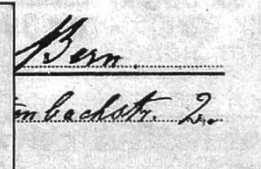 Bern.
mbachstr. 2.